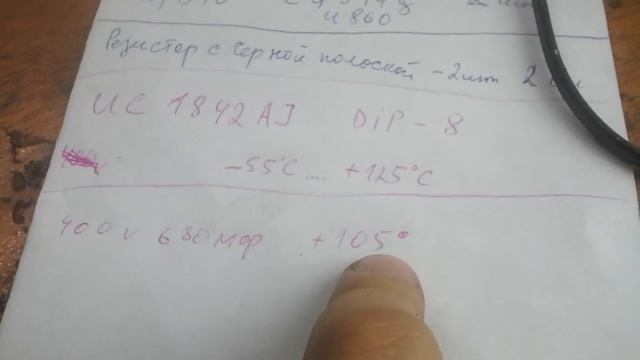 и 860
Резистор с черной полоской - 2шт 2
UC 1842AJ DiP - 8
-55°C .... +125°C
400v 680мф +105°